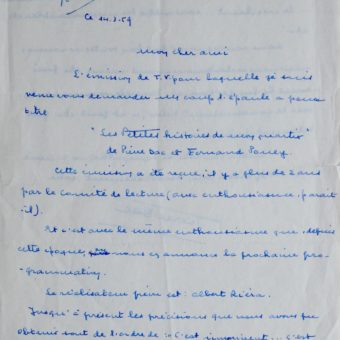 Ce 14.3.59
mon cher ami
L'émission de T.V pour laquelle je suis
venu vous demander un coup d'épaule a pour
titre
"Les Petites histoires de mon quartier"
de Pierre Dac et Fernand Pouey.
Cette émission a été reçue, il y a plus de 2 ans
par le Comité de lecture (avec enthousiasme, paraît
il).
Et c'est avec le même enthousiasme que, depuis
cette époque, on nous en annonce la prochaine pro-
grammation.
Le réalisateur prévu est : Albert Riéra.
Jusqu'à présent les précisions que nous avons pu
obtenir sont de l'ordre de : "C'est imminent... c'est